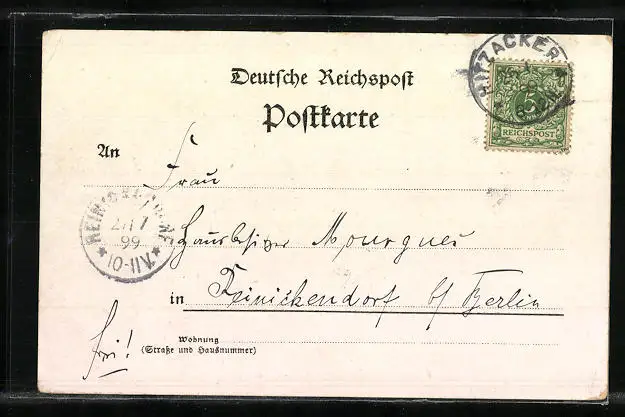 HITZACKER
5
REICHSPOST
Deutsche Reichspost
Postkarte
An
Frau
Hausbesitzer Mourgues
in Reinickendorf b/ Berlin
REINICKENDORF
27/7
99
7.11-01
frei!
Wohnung
(Straße und Hausnummer)